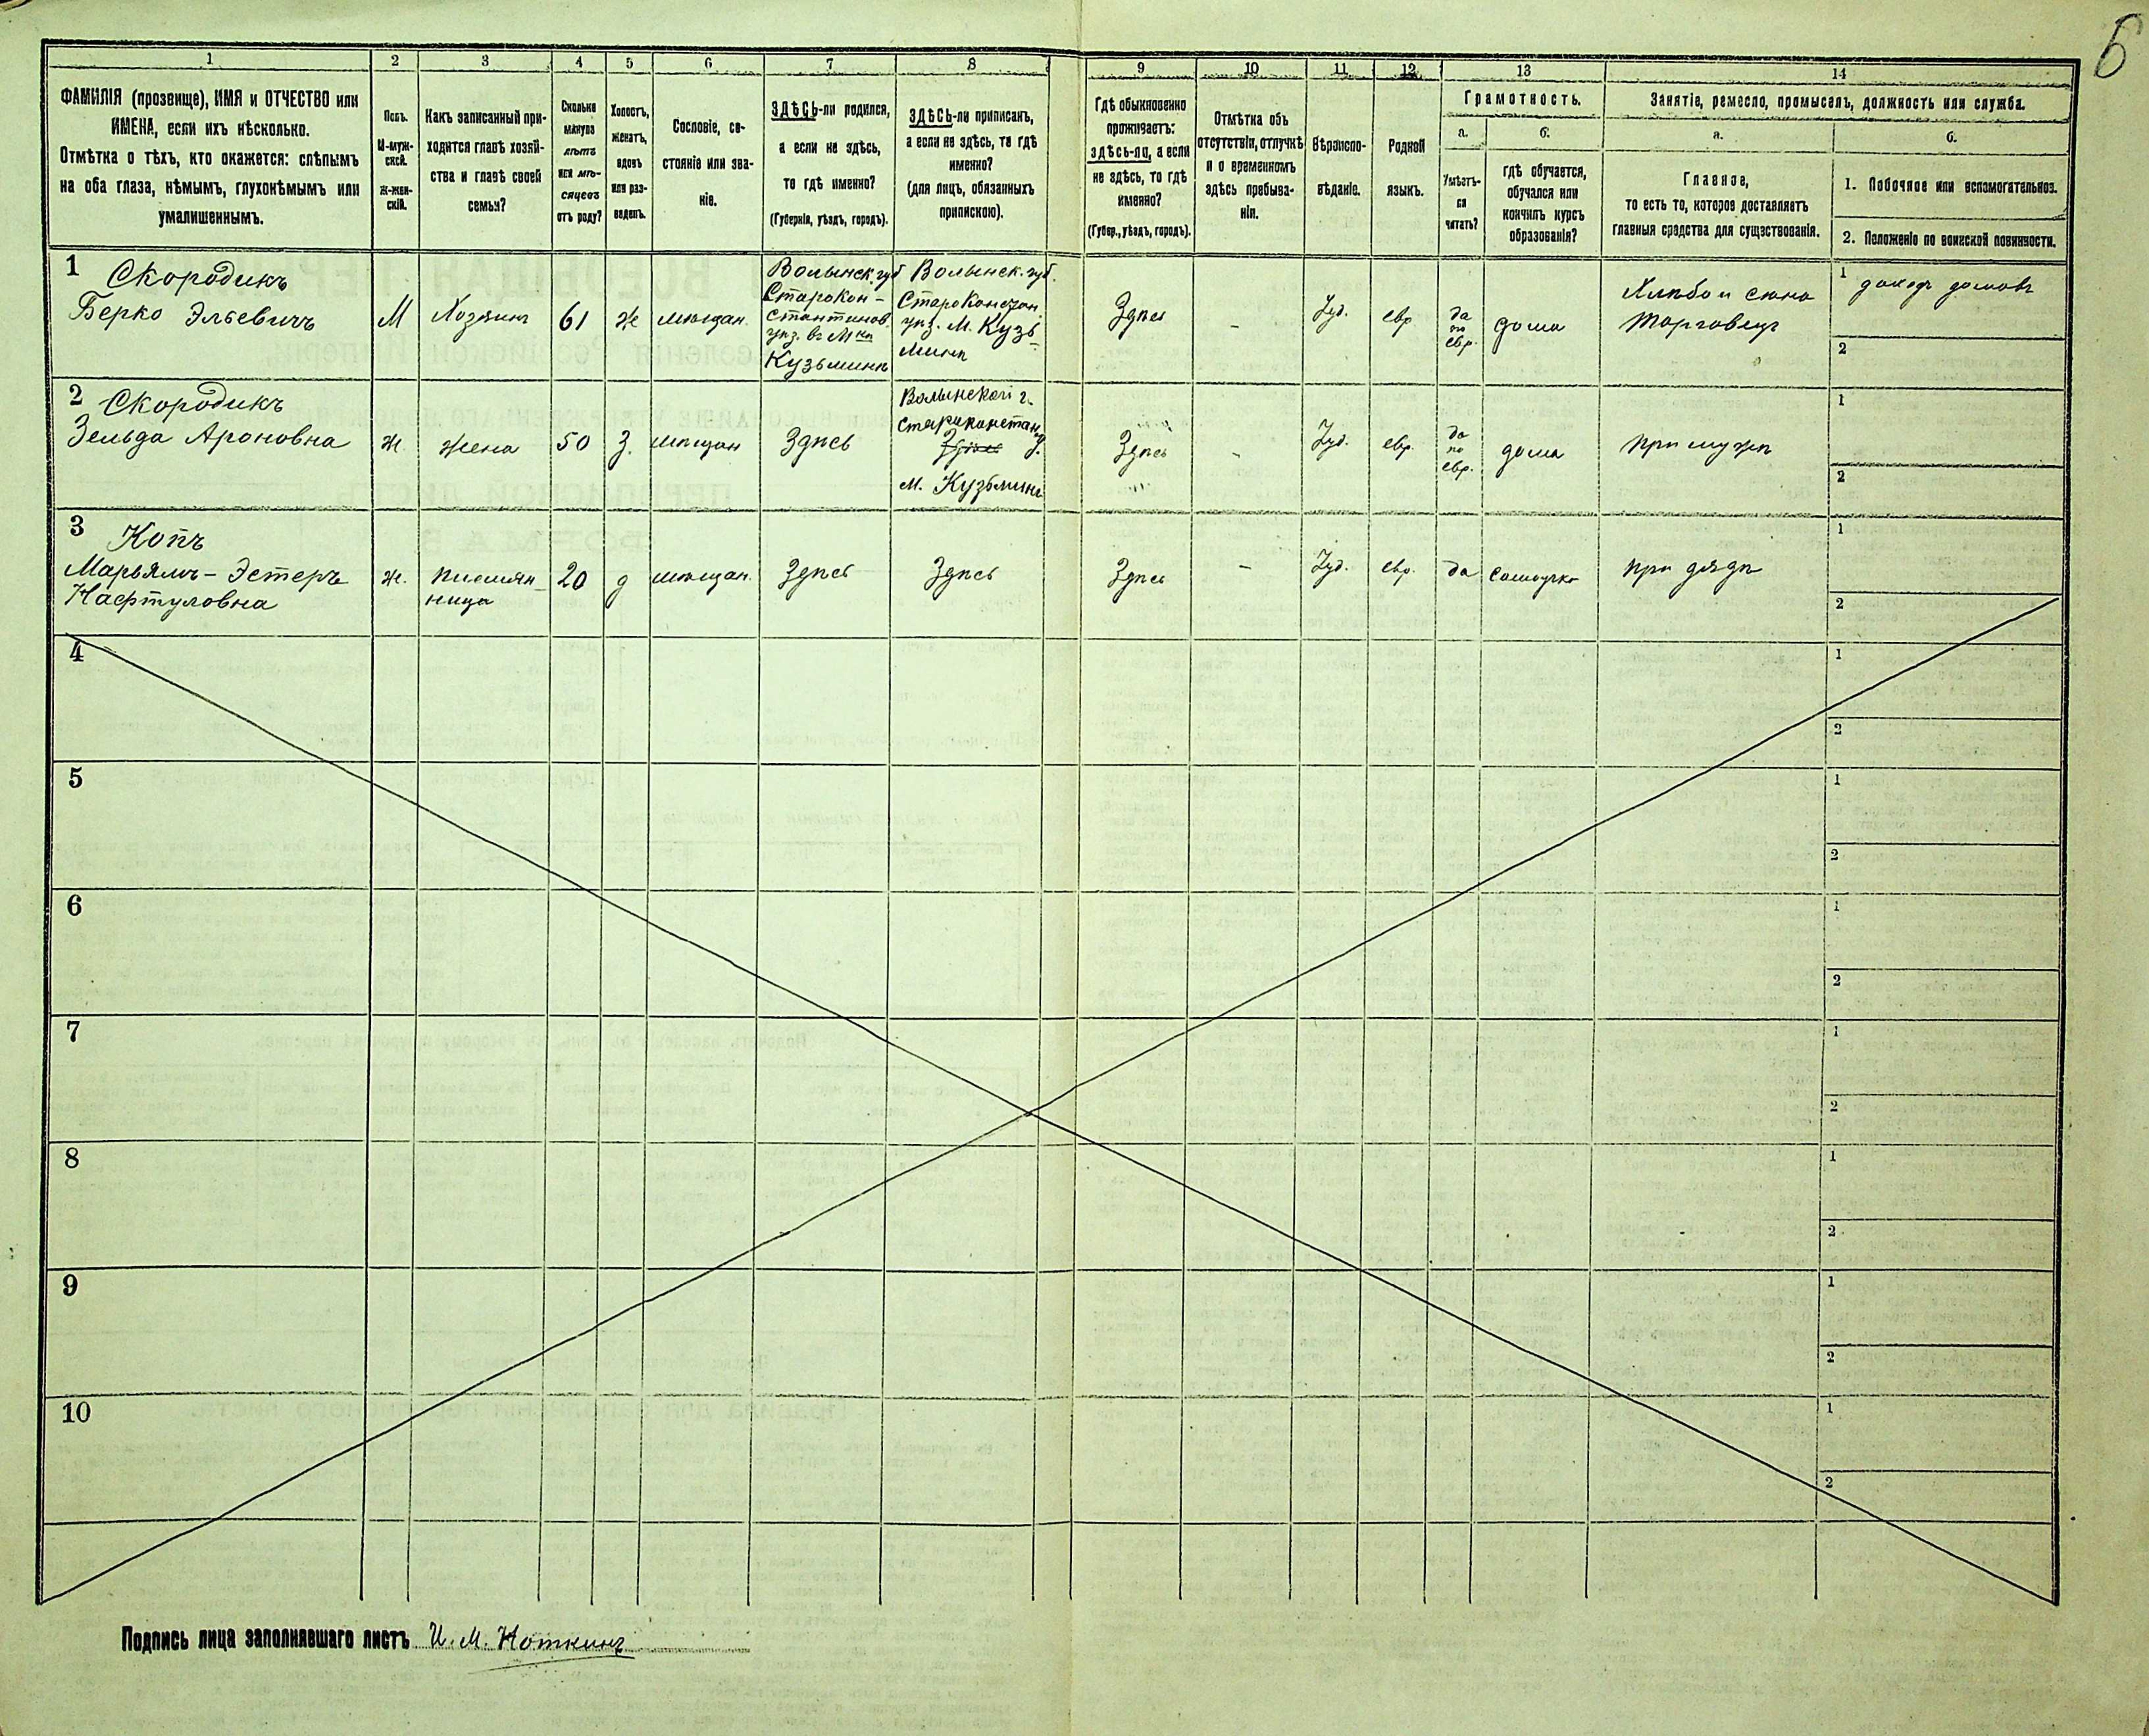 6
1 2 3 4 5 6 7 8 9 10 11 12 13 14
ФАМИЛІЯ (прозвище), ИМЯ и ОТЧЕСТВО или
ИМЕНА, если ихъ нѣсколько.
Отмѣтка о тѣхъ, кто окажется: слѣпымъ
на оба глаза, нѣмымъ, глухонѣмымъ или
умалишеннымъ.
Полъ.
М-муж-
ской.
Ж-жен-
скій.
Какъ записанный при-
ходится главѣ хозяй-
ства и главѣ своей
семьи?
Сколько
минуло
лѣтъ
или мѣ-
сяцевъ
отъ роду?
Холостъ,
женатъ,
вдовъ
или раз-
веденъ.
Сословіе, со-
стояніе или зва-
ніе.
ЗДѢСЬ-ли родился,
а если не здѣсь,
то гдѣ именно?
(Губернія, уѣздъ, городъ).
ЗДѢСЬ-ли приписанъ,
а если не здѣсь, то гдѣ
именно?
(для лицъ, обязанныхъ
припискою).
Гдѣ обыкновенно
проживаетъ:
здѣсь-ли, а если
не здѣсь, то гдѣ
именно?
(Губер., уѣздъ, городъ).
Отмѣтка объ
отсутствіи, отлучкѣ
и о временномъ
здѣсь пребыва-
ніи.
Вѣроиспо-
вѣданіе.
Родной
языкъ.
Грамотность.
а.
Умѣетъ-
ли
читать?
б.
гдѣ обучается,
обучался или
кончилъ курсъ
образованія?
Занятіе, ремесло, промыселъ, должность или служба.
а.
Главное,
то есть то, которое доставляетъ
главныя средства для существованія.
б.
1. Побочное или вспомогательное.
2. Положеніе по воинской повинности.
1
Скородикъ
Берко Эльевичъ
М
Хозяинъ
61
ж
мѣщан.
Волынск. губ
Старокон-
стантинов.
уѣз. въ М кѣ
Кузьминѣ
Волынск. губ.
Староконстан.
уѣз. М. Кузь-
минѣ
Здѣсь
-
Іуд.
евр
да
по
евр.
дома
Хлѣбо и сѣно
торговецъ
1 доходъ домовъ
2
2
Скородикъ
Зельда Ароновна
ж
жена
50
З.
мѣщан
Здѣсь
Волынской г.
староконстан.
у.
м. Кузьминѣ
Здѣсь
-
Іуд.
евр.
да
по
евр.
дома
при мужѣ
1
2
3
Копъ
Марьямъ-Эстеръ
Нафтуловна
ж.
племян-
ница
20
д
мѣщан.
Здѣсь
Здѣсь
Здѣсь
-
Іуд.
евр.
да
самоучко
при дядѣ
1
2
4
1
2
5
1
2
6
1
2
7
1
2
8
1
2
9
1
2
10
1
2
Подпись лица заполнявшаго листъ И. М. Ноткинъ